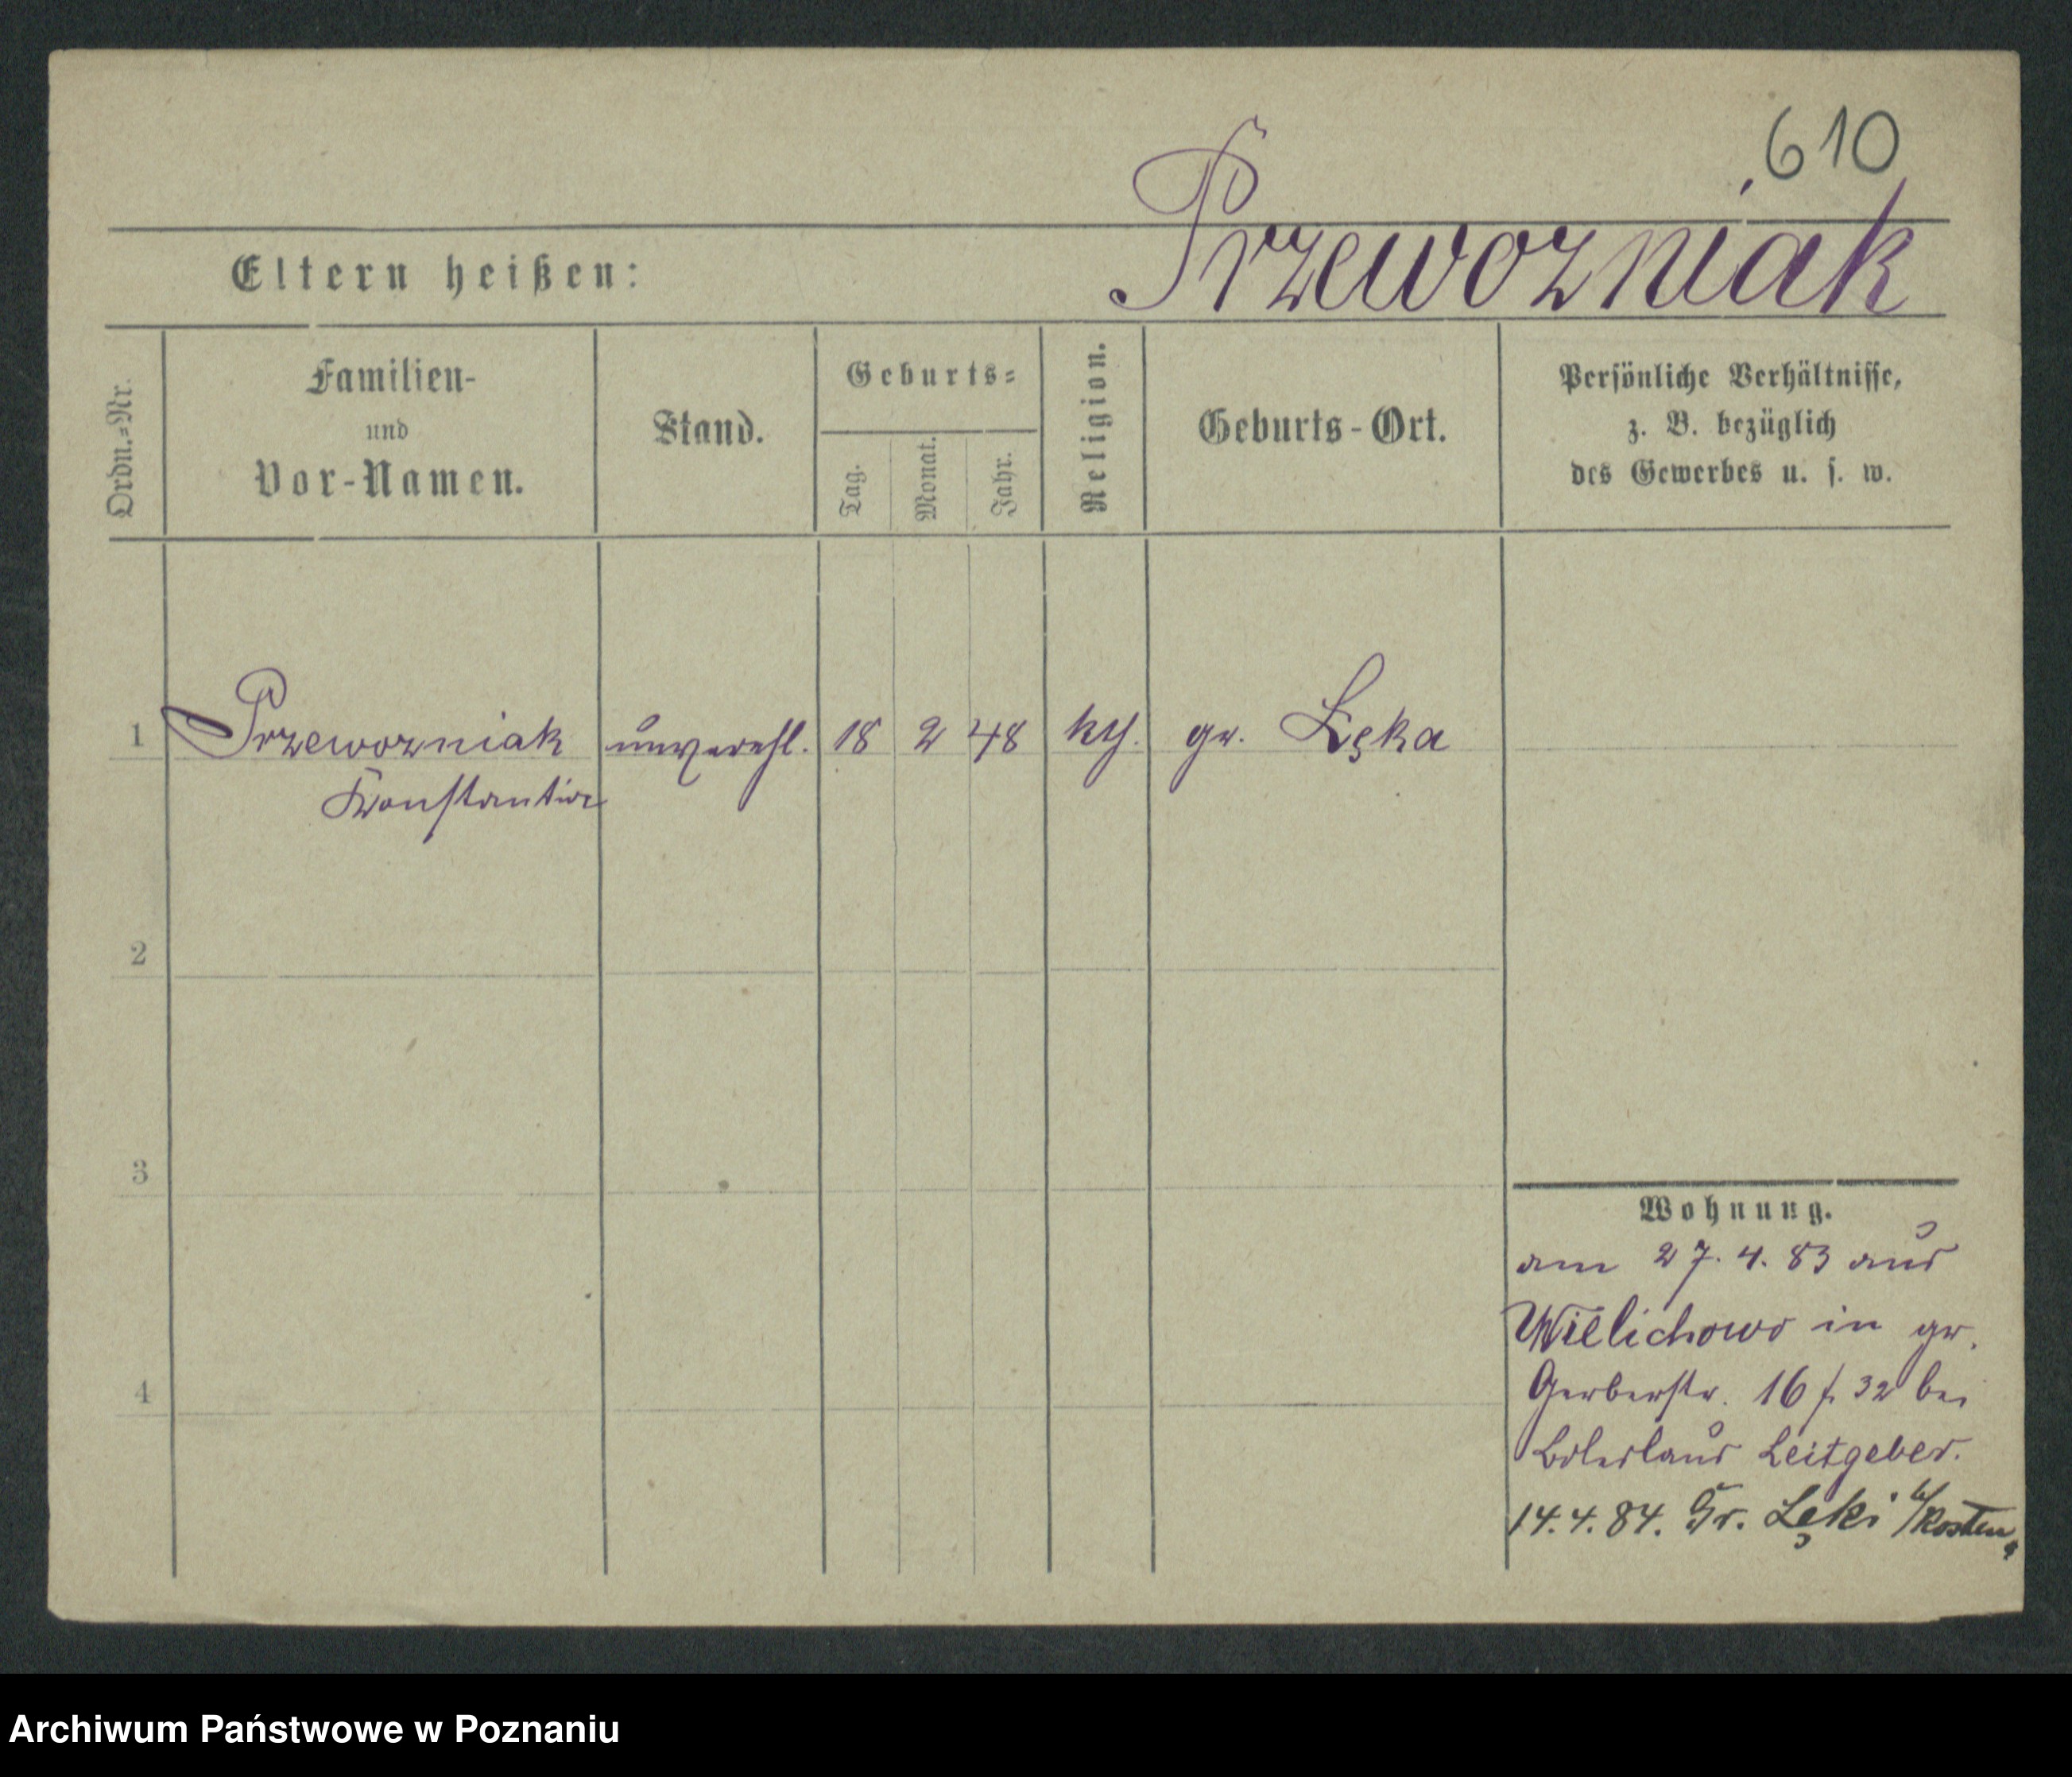 610
Przewozniak
Eltern heißen:
Ordn.=Nr.
Familien-
und
Vor-Namen.
Stand.
Geburts=
Tag.
Monat.
Jahr.
Religion.
Geburts-Ort.
Persönliche Verhältnisse,
z. B. bezüglich
des Gewerbes u. s. w.
1 Przewozniak unverehl. 18 2 48 kth. gr. Lęka
2
3
4
Wohnung.
am 27. 4. 83 aus
Wielichowo in gr.
Gerberstr. 16 f. 32 bei
Leitgeber.
14. 4. 84. Gr. Lęki b/Kosten
Archiwum Państwowe w Poznaniu